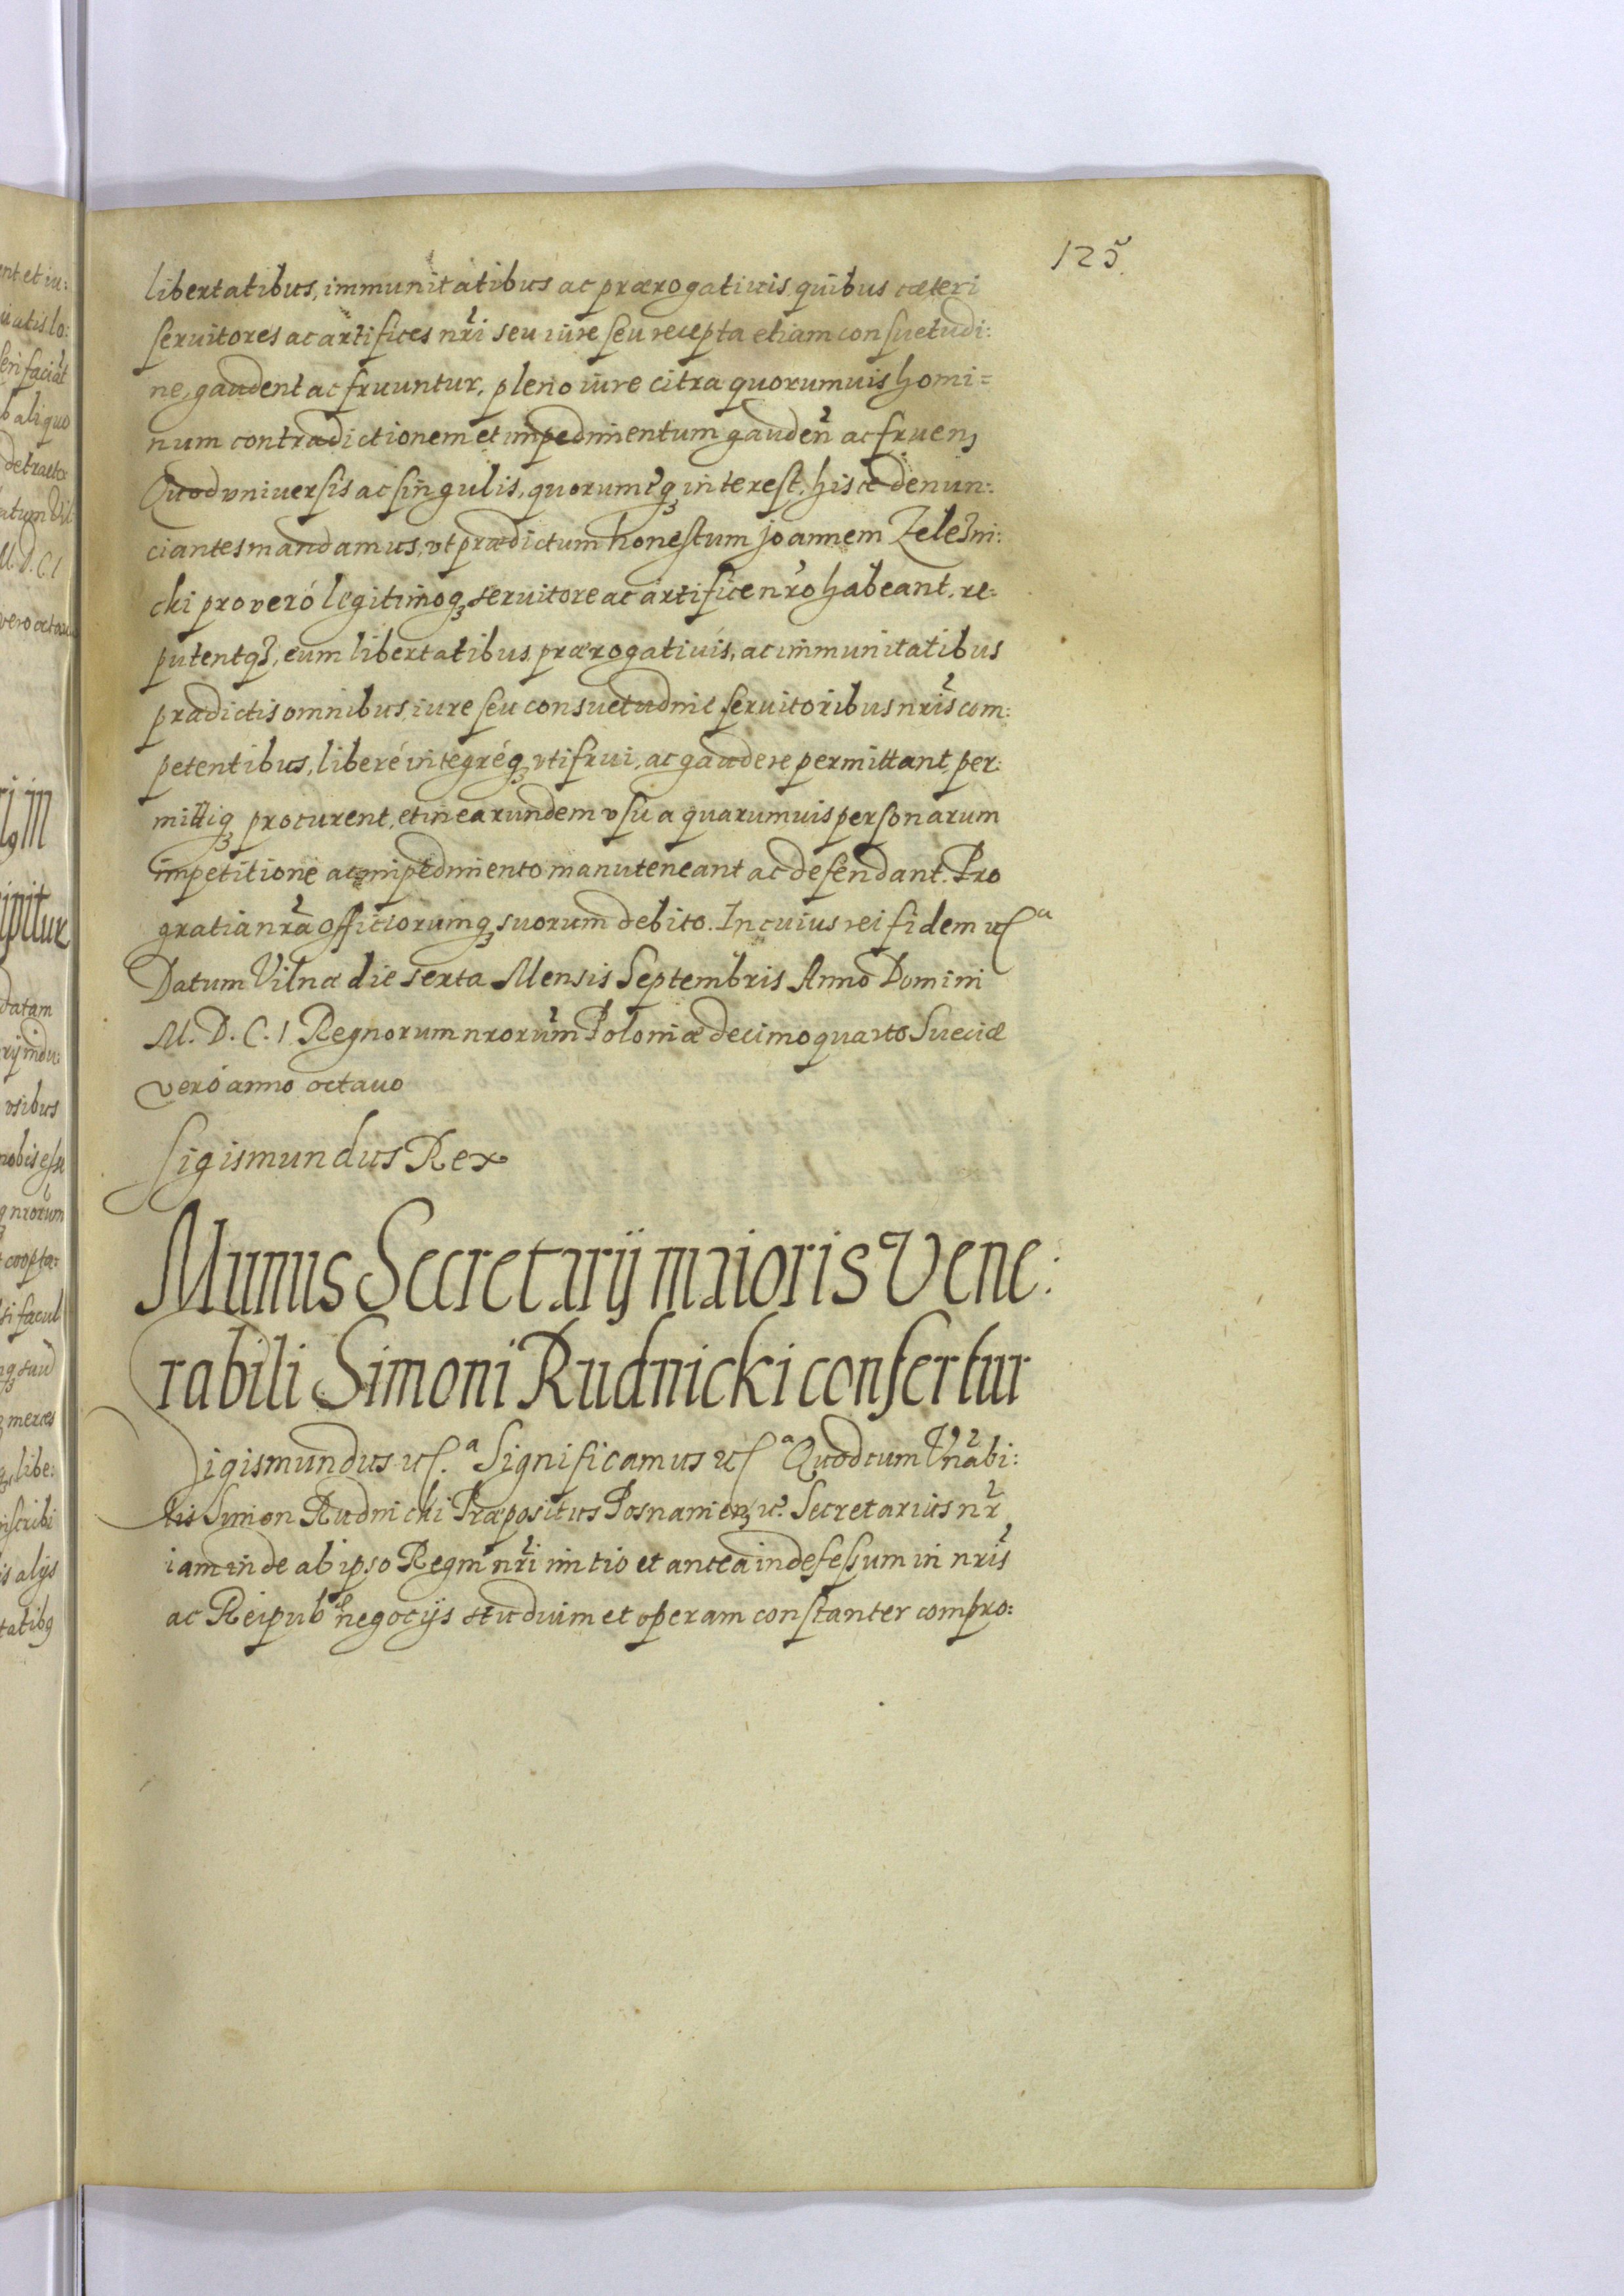 125.
libertatibus, immunitatibus ac prærogatiuis, quibus cæteri
seruitores ac artifices nri seu iure seu recepta etiam consuetudi:
ne, gaudent ac fruuntur, pleno iure citra quorumuis homi=
num contradictionem et impedimentum gauden ac fruen,
Quod vniuersis ac singulis, quorumcq interest, hisce denun:
ciantes mandamus, vt prædictum honestum Joannem Zelezni:
cki pro veró legitimoq seruitore ac artifice nro habeant, re:
putentq, eum libertatibus prærogatiuis, ac immunitatibus
prædictis omnibus, iure seu consuetudine seruitoribus nris com:
petentibus, liberé integréq vti frui, ac gaudere permittant, per:
mittiq procurent, et in earundem vsu a quarumuis personarum
impetitione ac impedimento manuteneant ac defendant. Pro
gratia nra officiorumq suorum debito. In cuius rei fidem etca
Datum Vilnæ die sexta Mensis Septembris Anno Domini
M. D. C. I Regnorum nrorum Poloniæ decimo quarto Sueciæ
veró anno octauo
Sigismundus Rex
Munus Secretarij maioris Vene:
rabili Simoni Rudnicki confertur
Sigismundus etc.a Significamus etca Quod cum Vnabi:
lis Simon Rudnicki Præpositus Posnanien, etc. Secretarius nr
iam inde ab ipso Regni nri initio et antea indefessum in nris
ac Reipub negocijs studium et operam constanter compro: